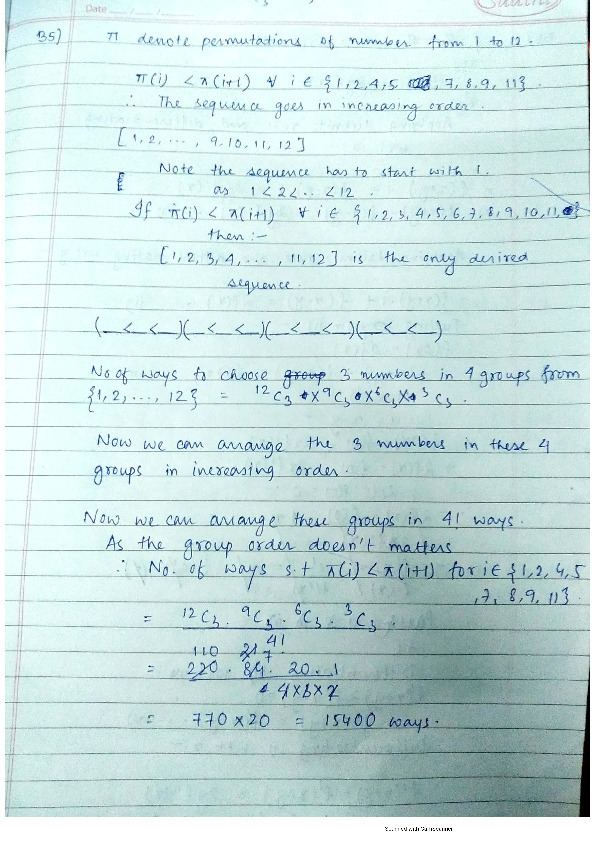 Date
35) π denote permutations of number from 1 to 12.
π(i) < π(i+1) ∀ i ∈ {1,2,4,5, 7,8,9, 11}.
∴ The sequence goes in increasing order.
[1,2, ..., 9,10,11,12]
Note the sequence has to start with 1.
as 1<2<..<12.
If π(i) < π(i+1) ∀ i ∈ {1,2,3,4,5,6,7,8,9,10,11}
then :-
[1,2,3,4,..., 11,12] is the only desired
sequence.
(_<_<_)(_<_<_)(_<_<_)(_<_<_)
No of ways to choose group 3 numbers in 4 groups from
{1,2,...,12} = ¹²C₃ × ⁹C₃ × ⁶C₃ × ³C₃.
Now we can arrange the 3 numbers in these 4
groups in increasing order.
Now we can arrange these groups in 4! ways.
As the group order doesn't matters
∴ No. of ways s.t π(i) < π(i+1) for i ∈ {1,2,4,5
,7, 8,9, 11}.
= ¹²C₃ . ⁹C₃ . ⁶C₃ . ³C₃ .
4!
110 21 7
= 220 . 84 . 20 . 1
4×3×2
= 770 × 20 = 15400 ways.
Scanned with CamScanner